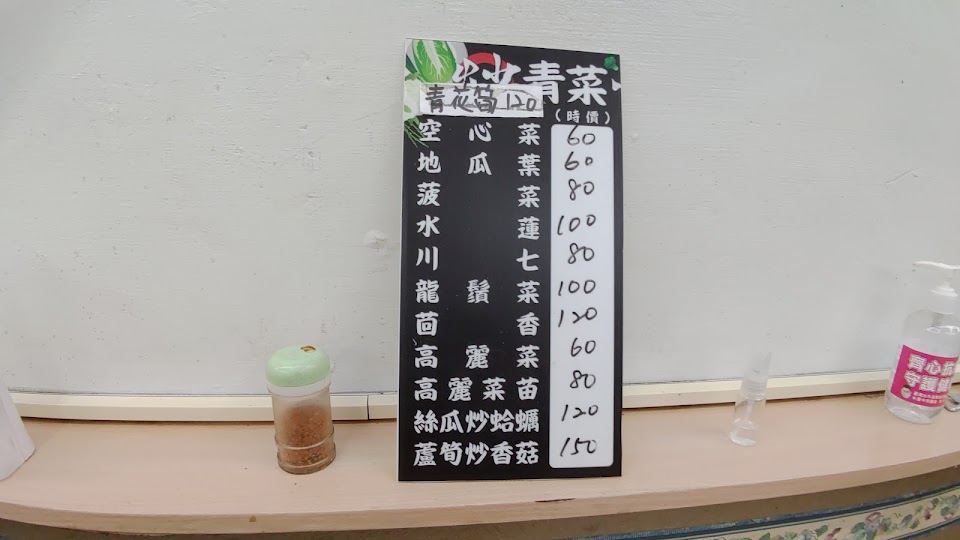 炒青菜
青花筍120
(時價)
空心菜 60
地瓜葉 60
菠菜 80
水蓮 100
川七 80
龍鬚菜 100
茴香 120
高麗菜 60
高麗菜苗 80
絲瓜炒蛤蠣 120
蘆筍炒香菇 150
齊心抗
守護